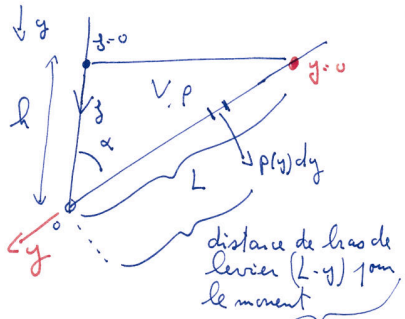 ↓ g
z=0
y=0
h
V, ρ
z
α
p(y)dy
L
o
y
distance de bras de
levier (L-y) pour
le moment